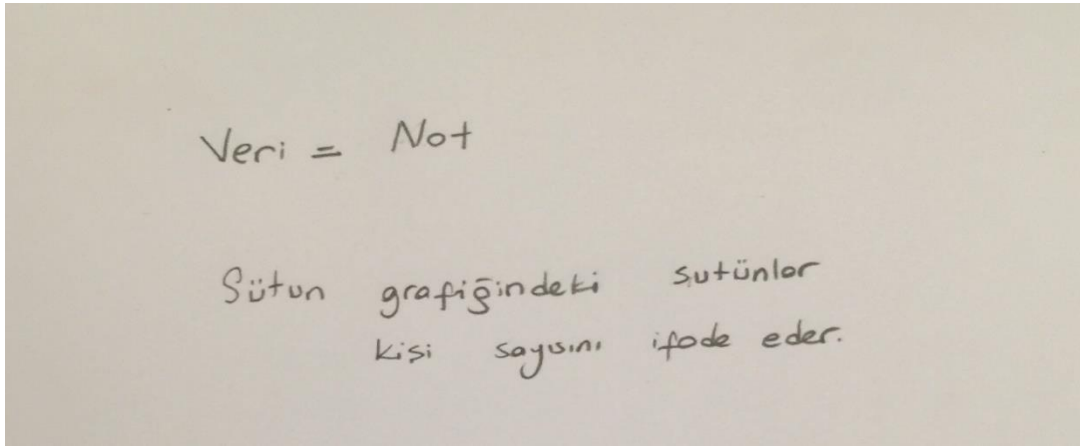 Veri = Not
Sütun grafiğindeki sutünlar
kişi sayısını ifade eder.